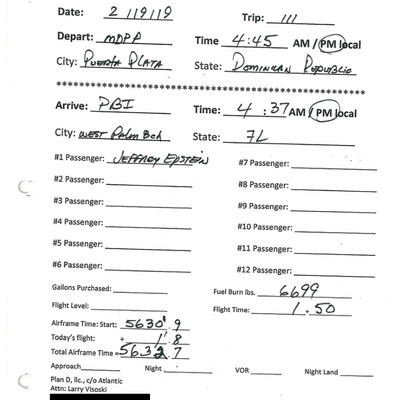 Date: 2/19/19 Trip: 111
Depart: MDPP Time 4:45 AM / PM local
City: PUERTA PLATA State: DOMINICAN REPUBLIC
********************************************************
Arrive: PBI Time: 4:37 AM / PM local
City: WEST Palm Bch State: FL
#1 Passenger: JEFFREY EPSTEIN #7 Passenger:
#2 Passenger: #8 Passenger:
#3 Passenger: #9 Passenger:
#4 Passenger: #10 Passenger:
#5 Passenger: #11 Passenger:
#6 Passenger: #12 Passenger:
Gallons Purchased: Fuel Burn lbs. 6699
Flight Level: Flight Time: 1.50
Airframe Time: Start: 5630.9
Today's flight: + 1.8
Total Airframe Time = 5632.7
Approach Night VOR Night Land
Plan D, llc., c/o Atlantic
Attn: Larry Visoski